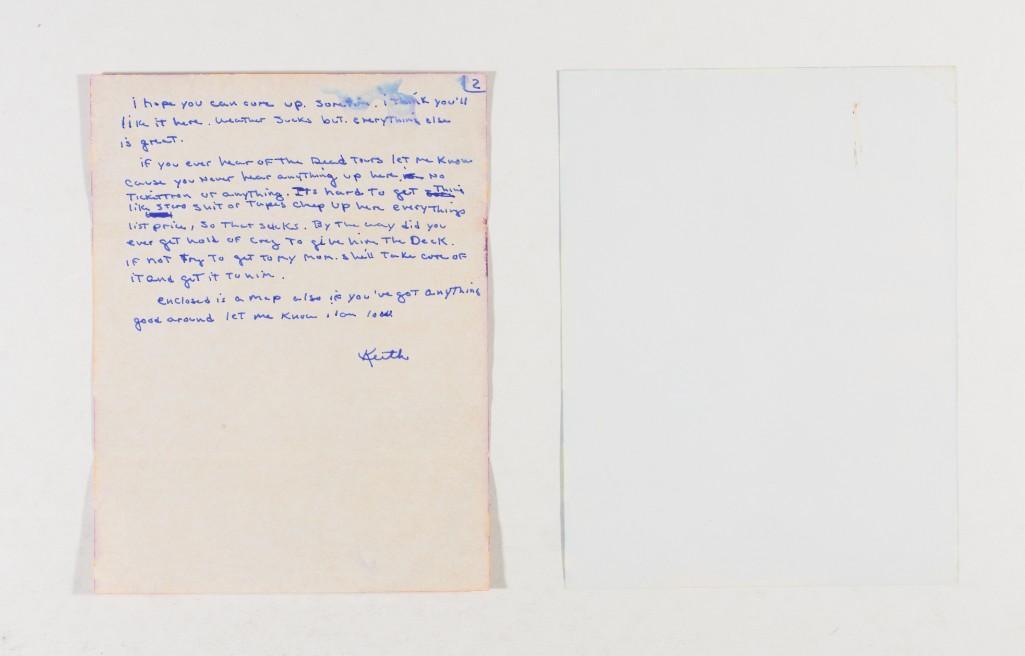 2
i hope you can come up. Sometime. i think you'll
like it here. weather sucks but. everything else
is great.
if you ever hear of The Dead Tours let me know
cause you never hear anything up here, No
Ticketron or anything. Its hard to get Thing
like Stereo shit or Tapes cheep up here everythings
list price, so That sucks. By The way did you
ever get hold of Greg To give him The Deck.
if not Try To get to my mom. she'll Take care of
it and get it To him.
enclosed is a map also if you've got anything
good around let me know
Keith